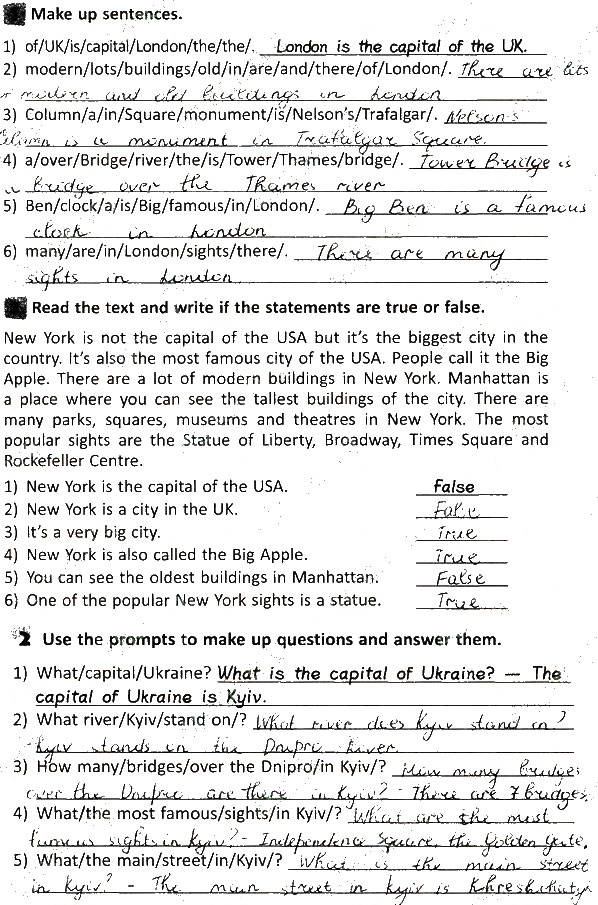 Make up sentences.
1) of/UK/is/capital/London/the/the/. London is the capital of the UK.
2) modern/lots/buildings/old/in/are/and/there/of/London/. There are lots
modern and old buildings in London
3) Column/a/in/Square/monument/is/Nelson's/Trafalgar/. Nelson's
Column is a monument in Trafalgar Square.
4) a/over/Bridge/river/the/is/Tower/Thames/bridge/. Tower Bridge is
a bridge over the Thames river
5) Ben/clock/a/is/Big/famous/in/London/. Big Ben is a famous
clock in London
6) many/are/in/London/sights/there/. There are many
sights in London
Read the text and write if the statements are true or false.
New York is not the capital of the USA but it's the biggest city in the
country. It's also the most famous city of the USA. People call it the Big
Apple. There are a lot of modern buildings in New York. Manhattan is
a place where you can see the tallest buildings of the city. There are
many parks, squares, museums and theatres in New York. The most
popular sights are the Statue of Liberty, Broadway, Times Square and
Rockefeller Centre.
1) New York is the capital of the USA. False
2) New York is a city in the UK. False
3) It's a very big city. True
4) New York is also called the Big Apple. True
5) You can see the oldest buildings in Manhattan. False
6) One of the popular New York sights is a statue. True
2 Use the prompts to make up questions and answer them.
1) What/capital/Ukraine? What is the capital of Ukraine? — The
capital of Ukraine is Kyiv.
2) What river/Kyiv/stand on/? What river does Kyiv stand on?
- Kyiv stands on the Dnipro River.
3) How many/bridges/over the Dnipro/in Kyiv/? How many bridges
over the Dnipro are there in Kyiv? - There are 7 bridges.
4) What/the most famous/sights/in Kyiv/? What are the most
famous sights in Kyiv? - Independence Square, the Golden Gate.
5) What/the main/street/in/Kyiv/? What is the main street
in Kyiv? - The main street in Kyiv is Khreshchatyk